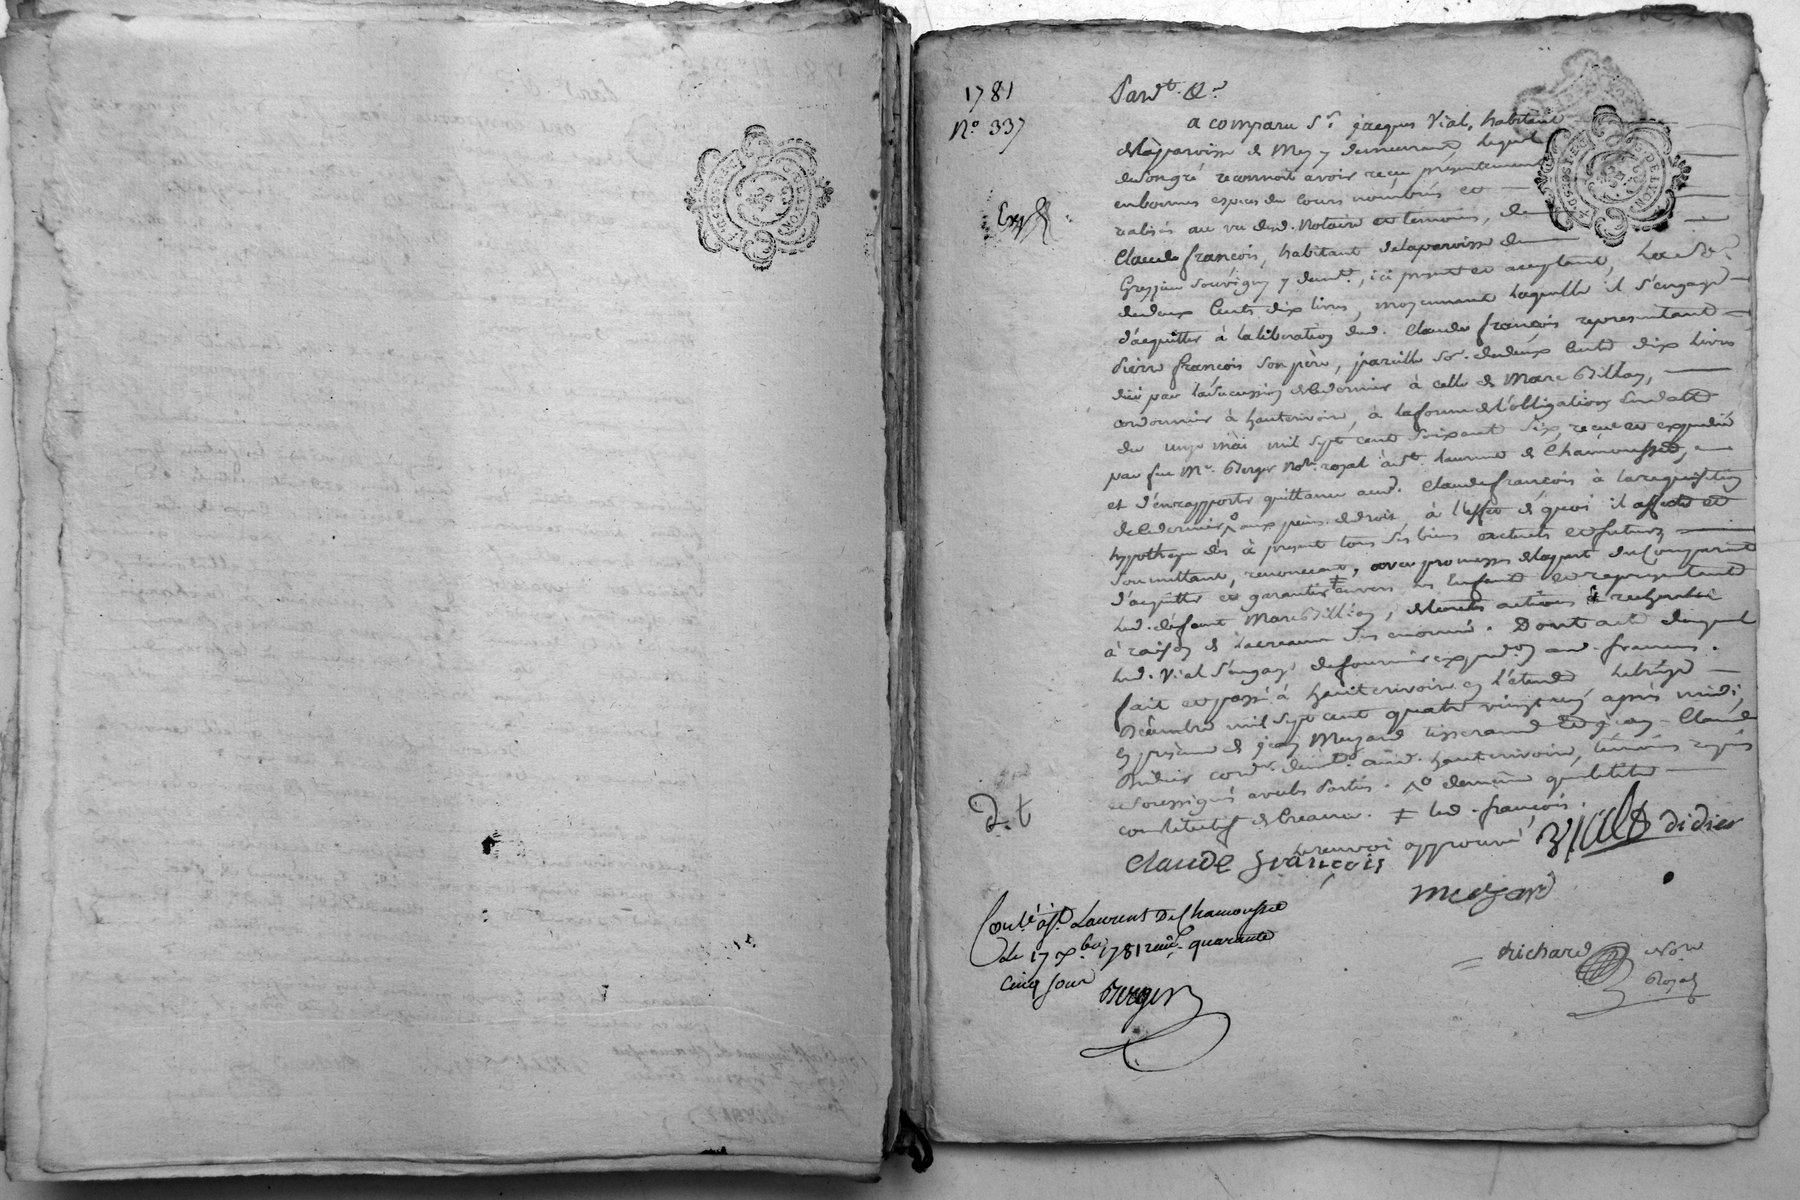 1781
N.º 337
Pard.t &.a
a comparu S.r jacques Vial, habitant
de la parroisse de Mey y demeurant, lequel
de son gré reconnoit avoir reçu presentement
en bonnes espèces du Cours nombrés et
réalisés au vu dud. Notaire et temoins, de
Claude françois, habitant de la parroisse de
Grezieu Souvigny y dem.t, ici present et acceptant, la
de deux Cents dix livres, moyennant laquelle il s'engage
d'acquitter à la liberation dud. Claude françois representant
Pierre françois son père, pareille so. de deux Cents dix livres
due par la succession de ce dernier à celle de Marc
cordonnier à hauterivoire, à la forme de l'obligation
du onze mai mil sept cent soixante six, reçue et expediée
par feu M.e Berger No.re royal à S.t Laurent de Chamousset,
et d'en rapporter quittance aud. Claude françois à la requisition
de ce dernier aux peines de droit à l'effet de quoi il affecte et
hypotheque dès à present tous ses biens actuels et futurs
Soumettant, renonceant, avec promesses de la part du Comparant
d'acquitter et garantir ‡ envers les Enfants et representants
dud. défunt Marc de toutes actions & recherches
à raison de la creance sus énoncée. Dont acte duquel
led. Vial s'engage de fournir exped.on aud. françois.
fait et passé à hauterivoire en l'étude le treize
Décembre mil sept cent quatre vingt un après midi,
en présence de jean Mezard tisserand et de jean Claude
Didier cord.r dem.ts aud. hauterivoire, témoins requis
et soussignés avec les parties.
constitutif de Creance. ‡ led. françois.
le renvoi approuvé
Claude françois Viald didier
mezard
Cont.lé à S.t Laurent De Chamousset
Le 17 Xbre 1781 quarante
Cinq sous Berger
Richard No.re
Royal